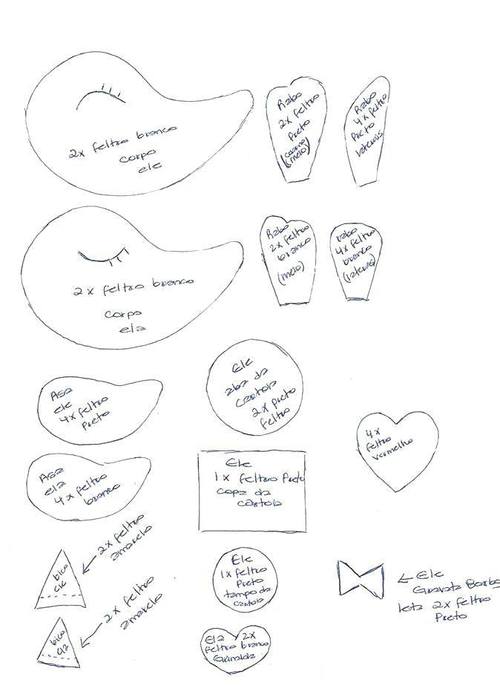 2x feltro branco
corpo
ele
Rabo
2x feltro
Preto
(meio)
Rabo
4x feltro
Preto
laterais
2x feltro branco
corpo
ela
Rabo
2x feltro
branco
(meio)
rabo
4x feltro
branco
(lateral)
Asa
ele
4x feltro
Preto
Ele
aba da
cartola
2x preto
feltro
4x
feltro
vermelho
Asa
ela
4x feltro
branco
Ele
1x feltro Preto
copa da
cartola
bico
ele
2x feltro
amarelo
Ele
1x feltro
Preto
tampo da
cartola
← Ele
Gravata Borbo
leta 2x feltro
Preto
bico
ela
2x feltro
amarelo
Ela 2x
feltro branco
Grinalda